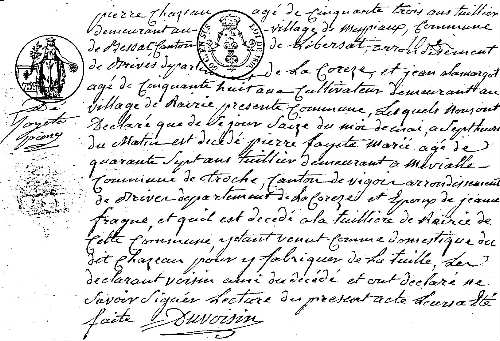 pierre Chazeau agé de Cinquante trois ans tuillier
demeurant au village de Commune
de Canton de Lubersat, arrondissement
de Brives departement de La Coreze, et jean
agé de Cinquante huit ans Cultivateur demeurant au
village de Rairie presente Commune, Lesquels nous ont
Declaré que Le jour Saize du moi de mai, a Sept heures
du Matin est décédé pierre fayste Marié agé de
quarante Sept ans tuillier demeurant a
Commune de Troche, Canton de vigoir arrondissement
de Brives departement de La Coreze et Epoux de jeanne
fragne et qu'il est décédé a la tuilliere de Rairie de
Cette Commune y etant venut Comme domestique du
dot Chazeau pour y fabriquer de La tuille, Les
declarant voisin ami du décédé et ont declaré ne
Savoir Signer Lecture du present acte Leurs a été
faite Duvoisin